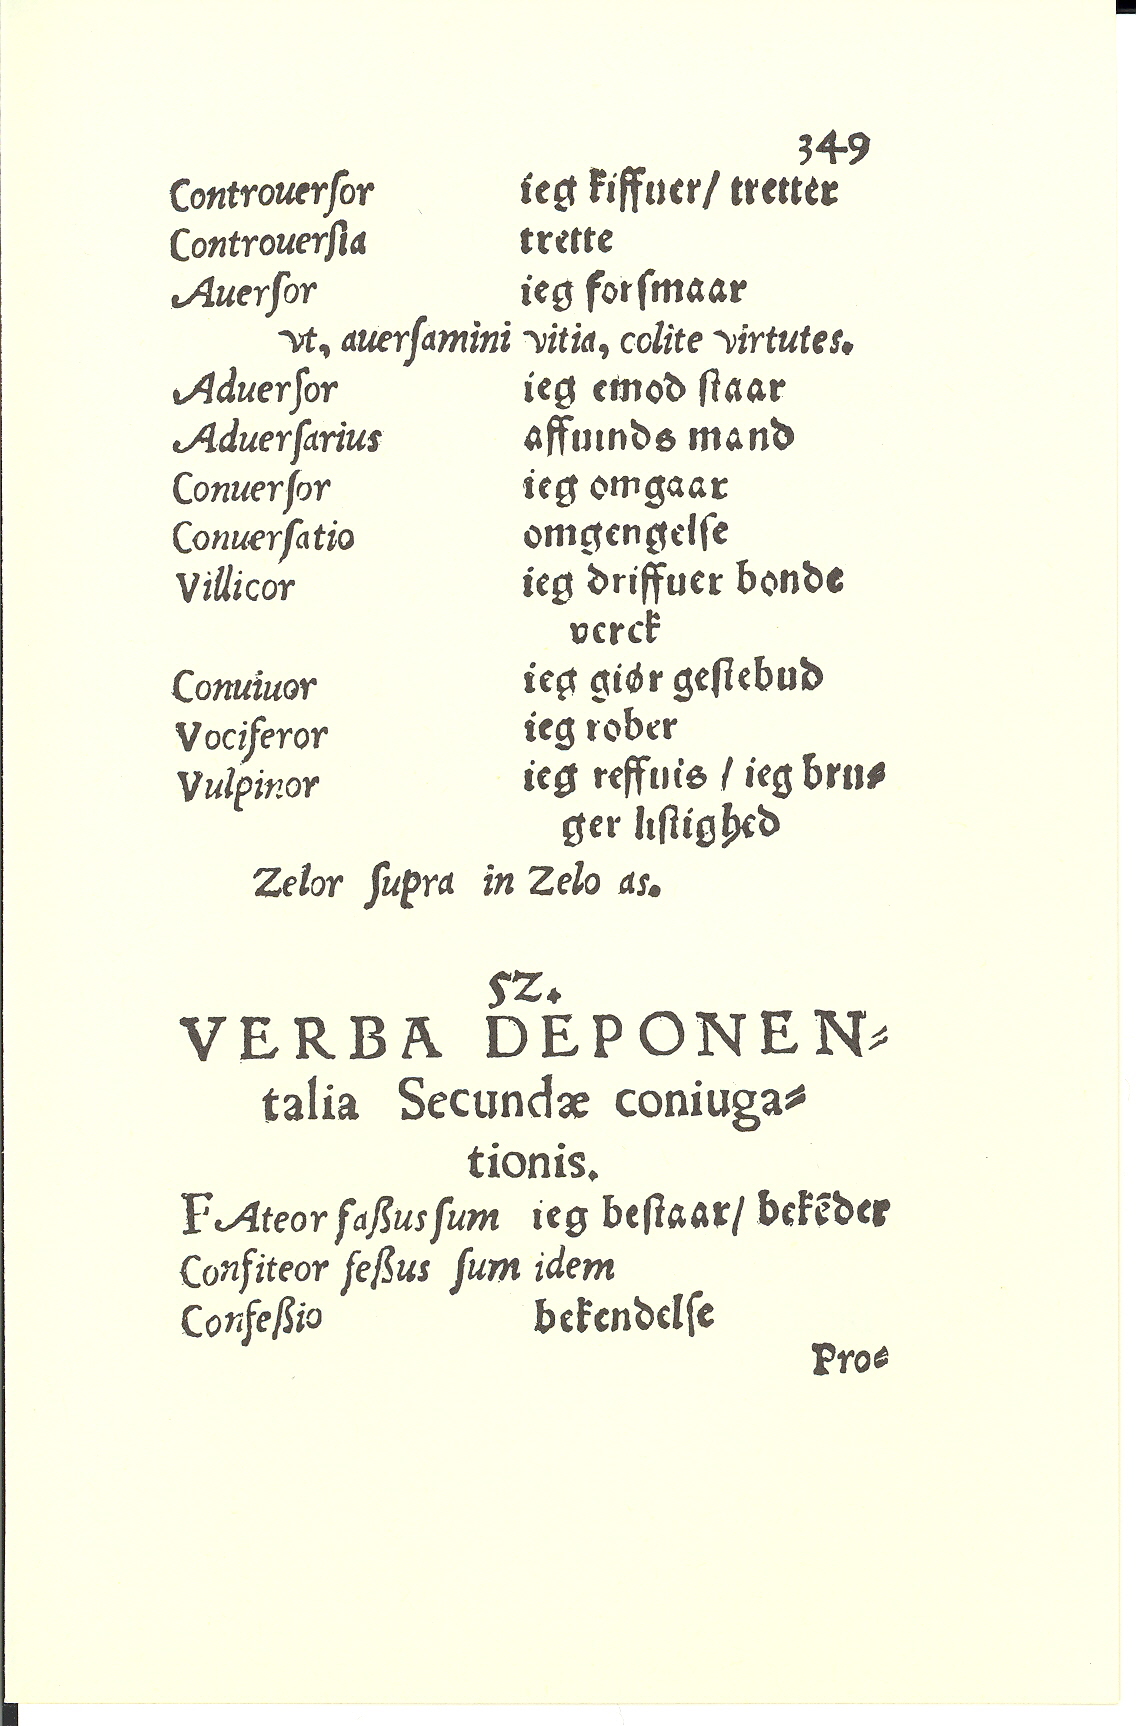 349
Controuerſor ieg kiffuer/ tretter
Controuerſia trette
Auerſor ieg forſmaar
vt, auerſamini vitia, colite virtutes.
Aduerſor ieg emod ſtaar
Aduerſarius affuinds mand
Conuerſor ieg omgaar
Conuerſatio omgengelſe
Villicor ieg driffuer bonde
verck
Conuiuor ieg giør geſtebud
Vociferor ieg rober
Vulpinor ieg reffuis / ieg bru⸗
ger liſtighed
Zelor ſupra in Zelo as.
52.
VERBA DEPONEN⸗
talia Secundæ coniuga⸗
tionis.
FAteor faßus ſum ieg beſtaar/ bekēder
Confiteor feßus ſum idem
Confeßio bekendelſe
Pro⸗